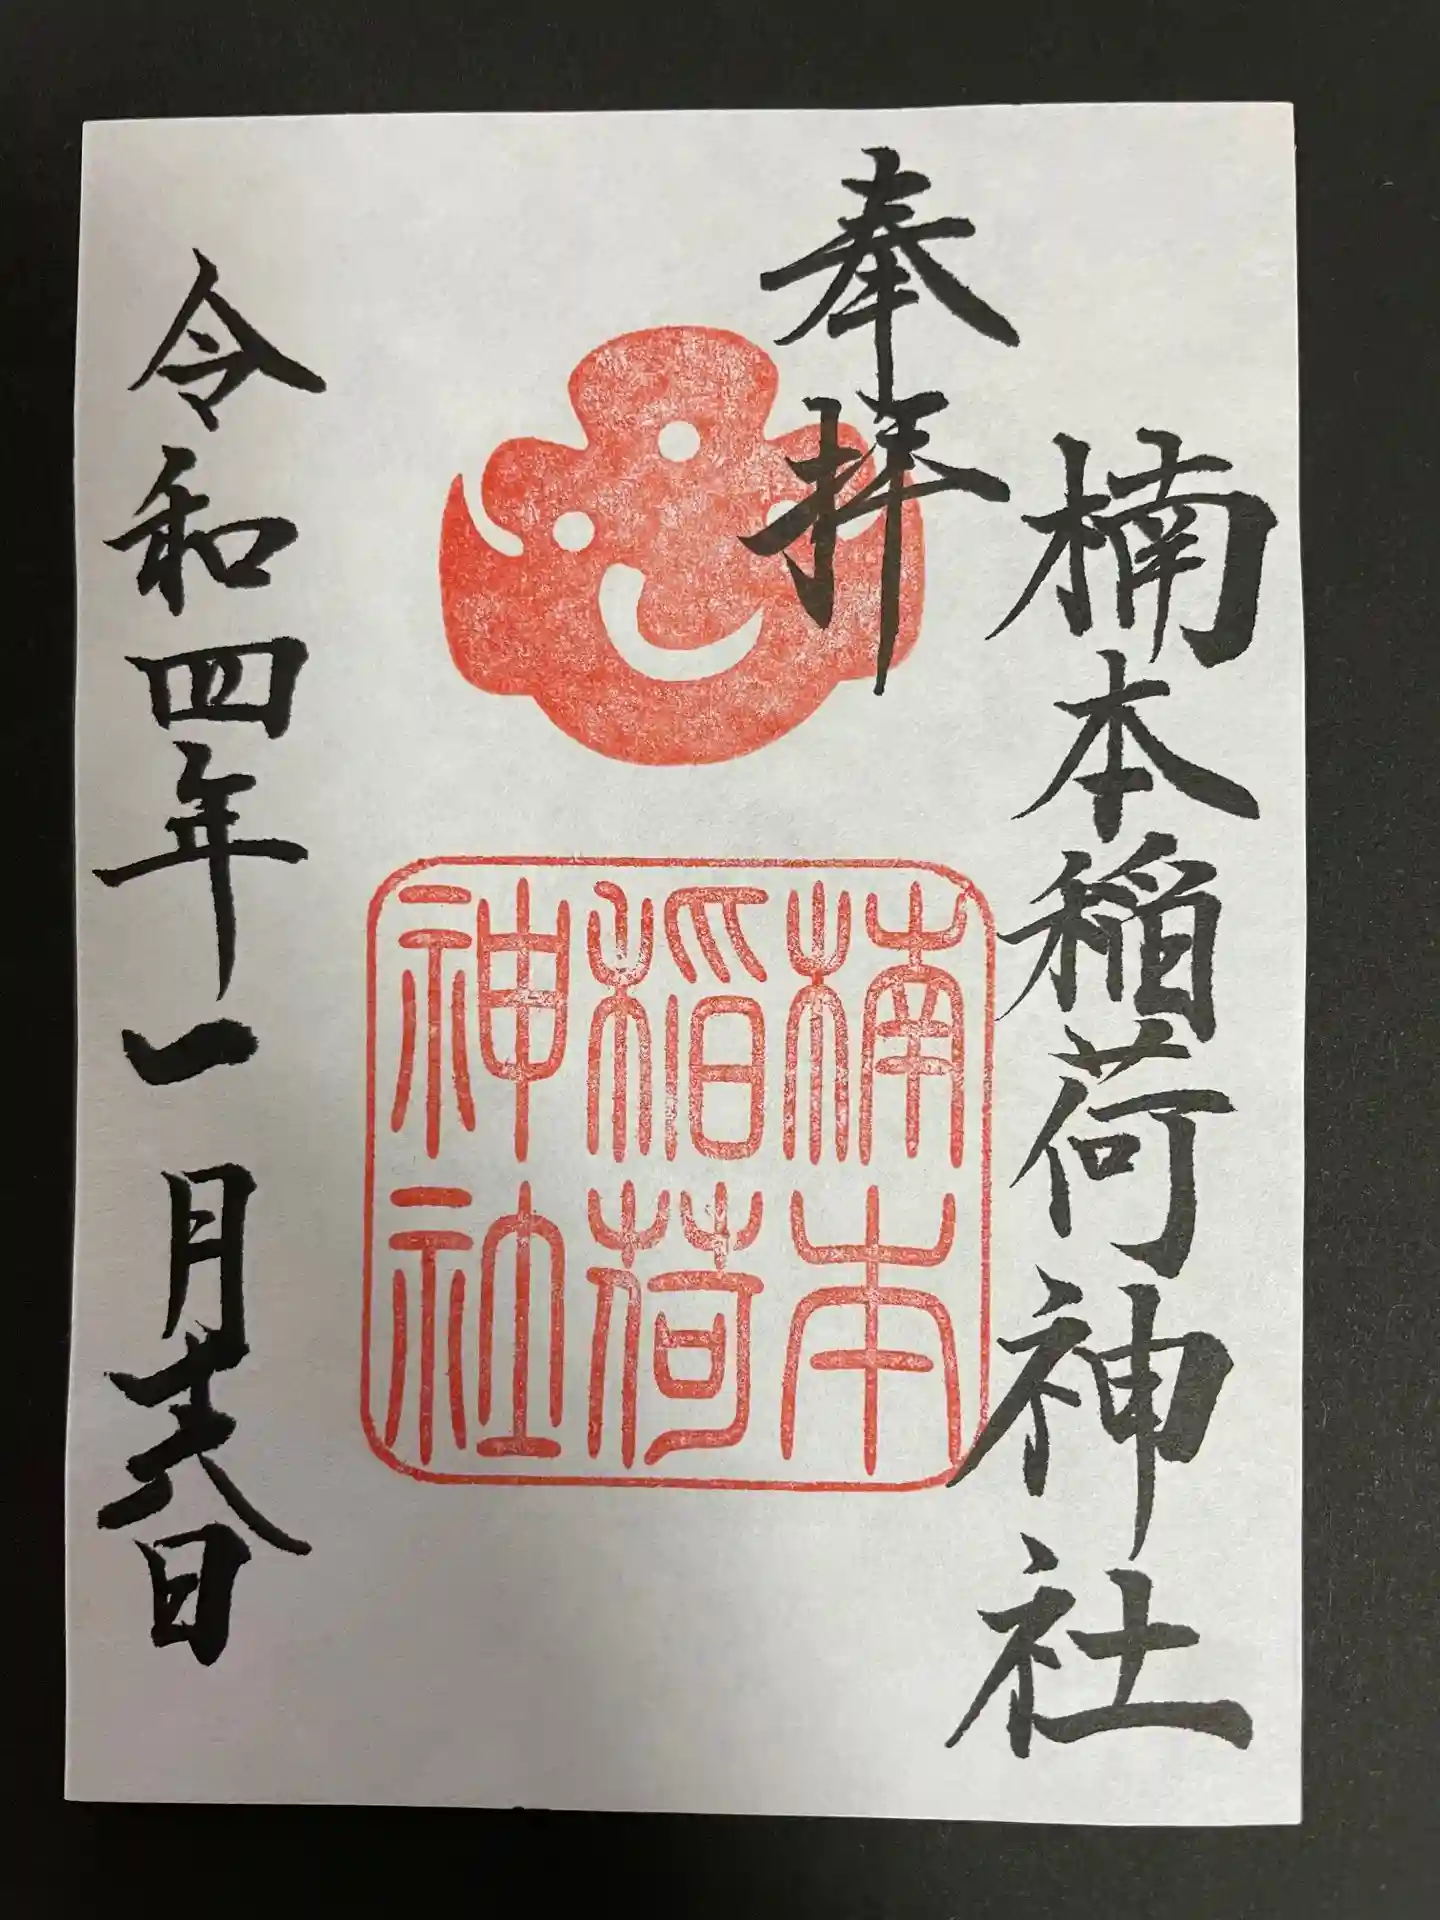 楠本稲荷神社
奉拝
楠本
稲荷
神社
令和四年一月十八日